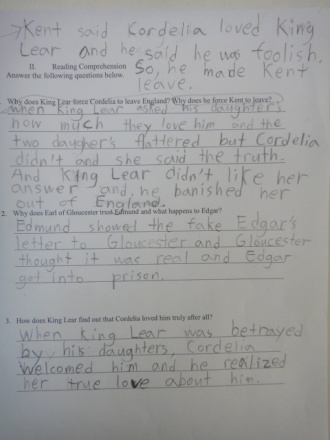 →Kent said Cordelia loved King
Lear and he said he was foolish.
So, he made Kent
leave.
II. Reading Comprehension
Answer the following questions below.
Why does King Lear force Cordelia to leave England? Why does he force Kent to leave?
When King Lear asked his daughters
how much they love him and the
two daugher's flattered but Cordelia
didn't and she said the truth.
And King Lear didn't like her
answer and he banished her
out of England.
2. Why does Earl of Gloucester trust Edmund and what happens to Edgar?
Edmund showed the fake Edgar's
letter to Gloucester and Gloucester
thought it was real and Edgar
got into prison.
3. How does King Lear find out that Cordelia loved him truly after all?
When King Lear was betrayed
by his daughters, Cordelia
welcomed him and he realized
her true love about him.